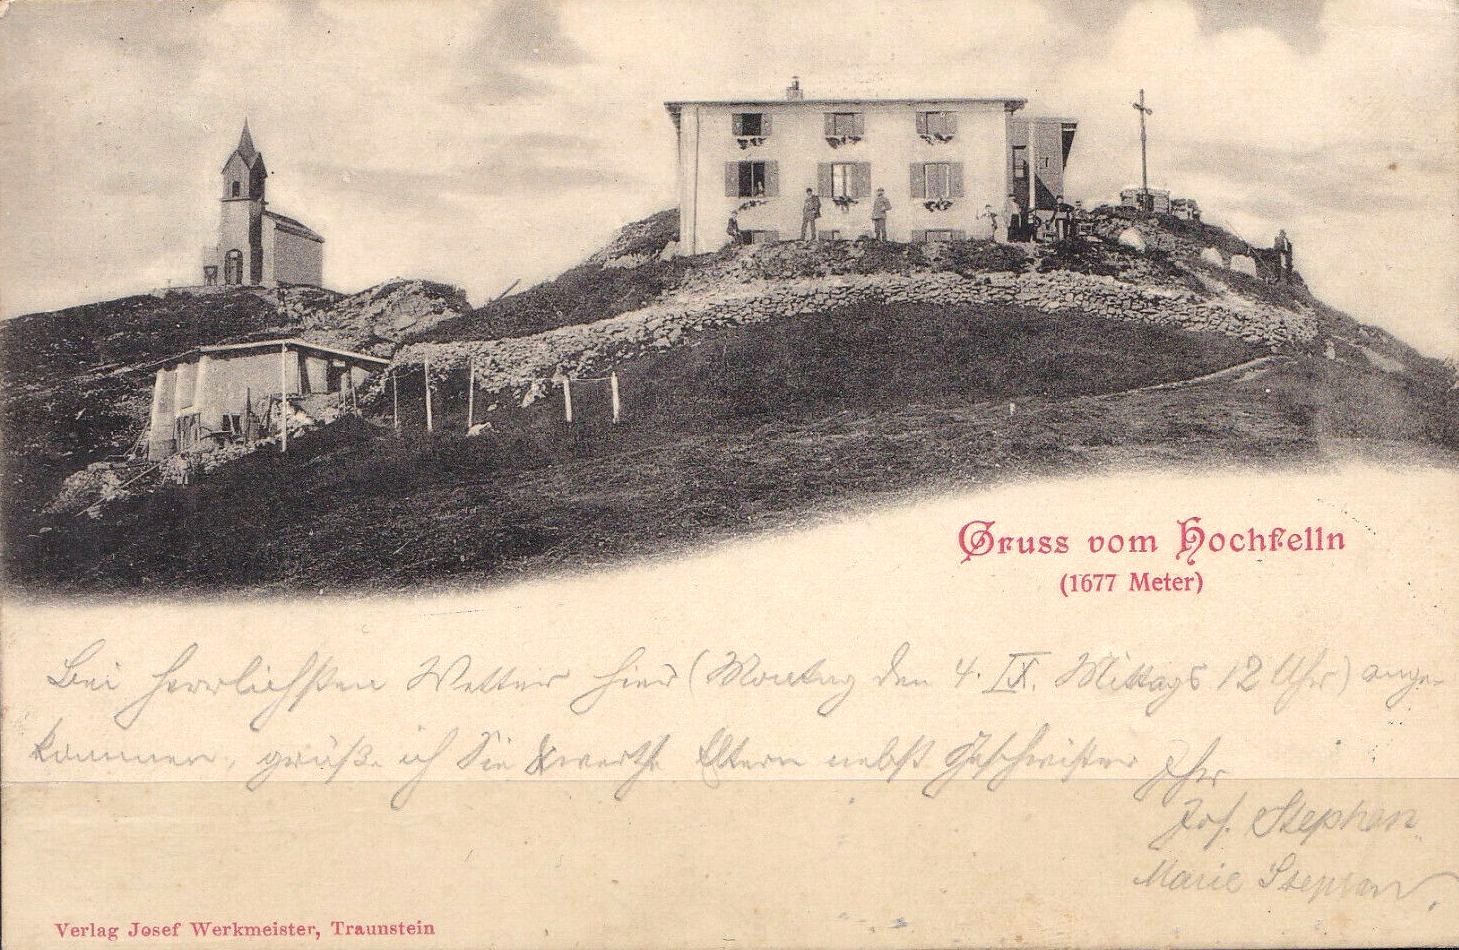 Gruss vom Hochfelln
(1677 Meter)
Bei herrlichsten Wetter hier (Montag den 4. IX. Mittags 12 Uhr) ange-
kommen, grüße ich Sie werthe Eltern nebst Geschwister Ihr
Jos. Stephan
Marie Stephan.
Verlag Josef Werkmeister, Traunstein